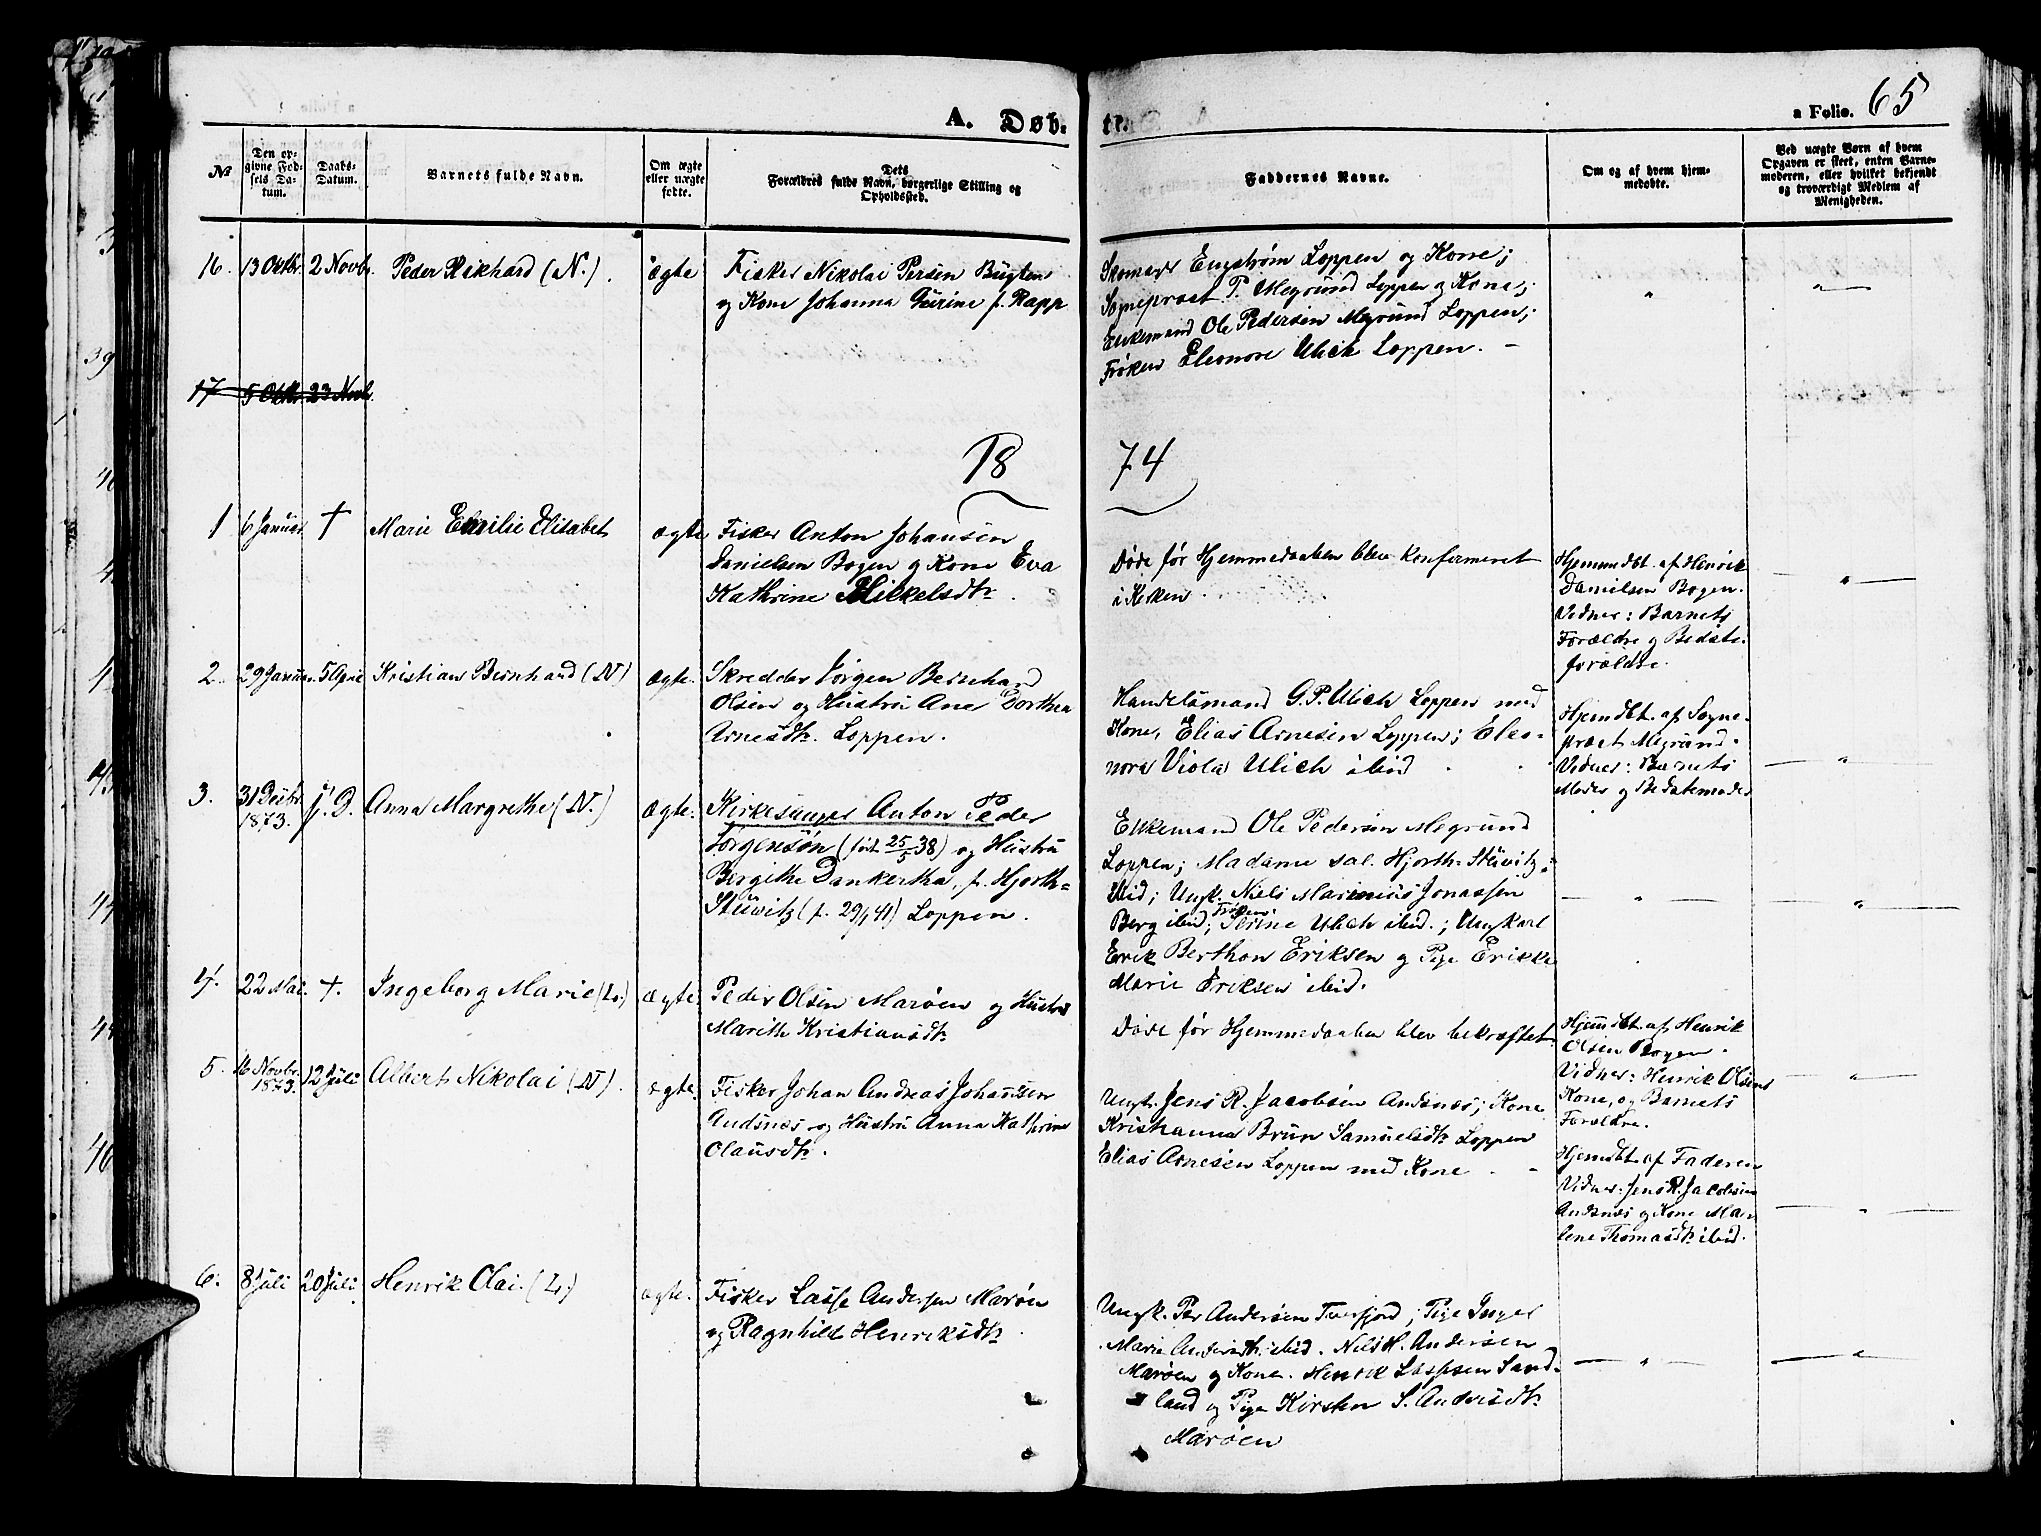 A. Døb-
te.
a Folio. 65
№
Den op-
givne Fød-
sels Da-
tum.
Daabs-
Datum.
Barnets fulde Navn.
Om ægte
eller uægte
fødte.
Dets
Forældres fulde Navn, borgerlige Stilling og
Opholdssted.
Faddernes Navne.
Om og af hvem hjem-
medøbte.
Ved uægte Børn af hvem
Opgaven er skeet, enten Barne-
moderen, eller hvilket bekjendt
og troværdigt Medlem af
Menigheden.
16. 13 Oktbr. 2 Novbr. Peder Rikhard (N.) ægte
Fisker Nikolai Persen Bugten
og Kone Johanna Gurine f. Rapp
Skomager Engstrøm Loppen og Kone;
Sogneprest P. Megrund Loppen og Kone;
Enkemand Ole Pedersen Megrund Loppen;
Frøken Eleonore Ulich Loppen. –
17 5 Oktbr. 23 Novb.
18 74
1 6 Januar † Marie Emilie Elisabet ægte
Fisker Anton Johansen
Danielsen Bogen og Kone Eva
Kathrine Mikkelsdtr.
Døde før Hjemmedaaben blev konfirmeret
i Kirken.
Hjemmedbt. af Henrik
Danielsen Bogen.
Vidner: Barnets
Forældre og Bedste-
forældre.
2. 29 Januar. 5 April Kristian Bernhard (N) ægte.
Skredder Jørgen Bernhard
Olsen og Hustru Ane Dorthea
Arnesdtr. Loppen.
Handelsmand G. P. Ulich Loppen med
Kone, Elias Arnesen Loppen; Eleo-
nora Viola Ulich ibid
Hjemdbt. af Sogne-
præst Megrund.
Vidner: Barnets
Moder og Bedstemoder
3. 31 Desbr. 1873. j. D. Anna Margrethe (N.) ægte.
Kirkesanger Anton Peder
Jørgensøn (født 25/5 38) og Hustru
Bergithe Dankertha, f. Hjorth-
Stuwitz (f. 29/1 41) Loppen.
Enkemand Ole Pedersen Megrund
Loppen; Madame sal. Hjorth-Stuwitz
ibid; Ungk. Niels Marinius Jonassen
Berg ibid; Frøken Serine Ulich ibid.; Ungkarl
Erik Berthon Eriksen og Pige Erikke
Marie Eriksen ibid.
4. 22 Mai. †. Ingeborg Marie (L.) ægte
Peder Olsen Marøen og Hustru
Marith Kristiansdtr.
Døde før Hjemmedaaben blev bekræftet.
Hjemdbt. af Henrik
Olsen Bogen.
Vidner: Henrik Olsens
Kone, og Barnets
Forældre.
5. 16 Novbr. 1873. 12 Juli Albert Nikolai (N). ægte.
Fisker Johan Andreas Johannsen
Andsnes og Hustru Anna Kathrine
Olausdtr.
Ungk. Jens R. Jacobsen Andsnes; Kone
Kristianna Brun Samuelsdtr. Loppen
Elias Arnesen Loppen med Kone
Hjemdbt. af Faderen
Vidner: Jens R. Jacobsen
Andsnes og Kone Ma-
lene Thomasdtr. ibid.
6. 8 Juli 20 Juli. Henrik Olai. (L.) ægte.
Fisker Lasse Andersen Marøen
og Ragnhild Henriksdtr.
Ungk. Per Andersen Tverfjord; Pige Inger
Marie Andersdtr. ibid. Nils H. Andersen
Marøen og Kone. Henrik Lassesen Sand-
land og Pige Kirsten S. Andersdtr.
Marøen